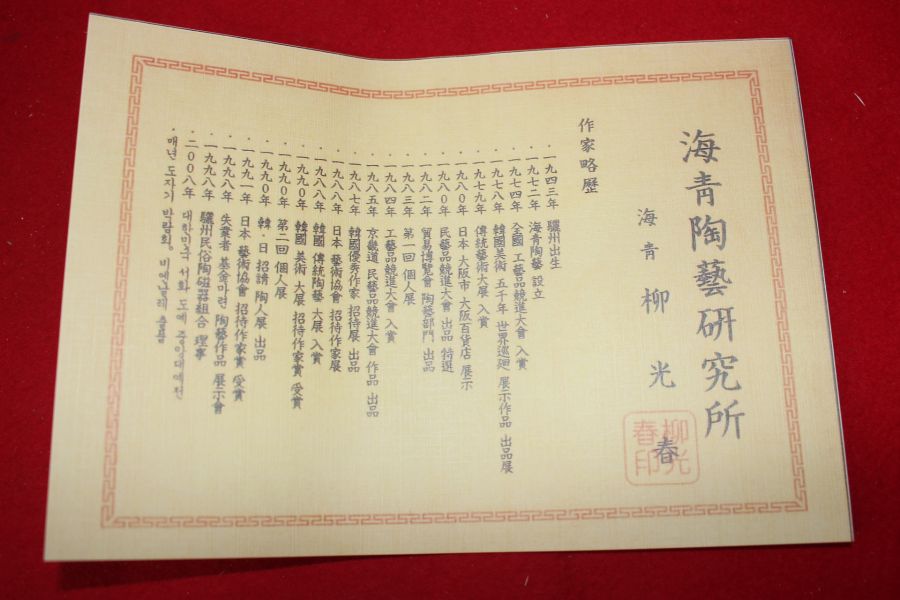 海青陶藝研究所
海青 柳光春
柳光春印
作家略歷
· 一九四三年 驪州出生
· 一九七二年 海青陶藝 設立
· 一九七四年 全國 工藝品競進大會 入賞
· 一九七八年 韓國美術 五千年 世界巡廻 展示作品 出品展
· 一九七九年 傳統藝術大展 入賞
· 一九八０年 日本 大阪市 大阪百貨店 展示
· 一九八０年 民藝品競進大會 出品 特選
· 一九八二年 貿易博覽會 陶藝部門 出品
· 一九八三年 第一回 個人展
· 一九八四年 工藝品競進大會 入賞
· 一九八五年 京畿道 民藝品競進大會 作品 出品
· 一九八七年 韓國優秀作家 招待展 出品
· 一九八八年 日本 藝術協會 招待作家展
· 一九八八年 韓國 傳統陶藝 大展 入賞
· 一九九０年 韓國 美術 大展 招待作家賞 受賞
· 一九九０年 第二回 個人展
· 一九九０年 韓·日 招請 陶人展 出品
· 一九九一年 日本 藝術協會 招待作家賞 受賞
· 一九九八年 失業者 基金마련 陶藝作品 展示會
· 一九九八年 驪州民俗陶磁器組合 理事
· 二００八年 대한민국 서화 도예 중앙대예전
· 매년 도자기 박람회, 비엔날레 출품